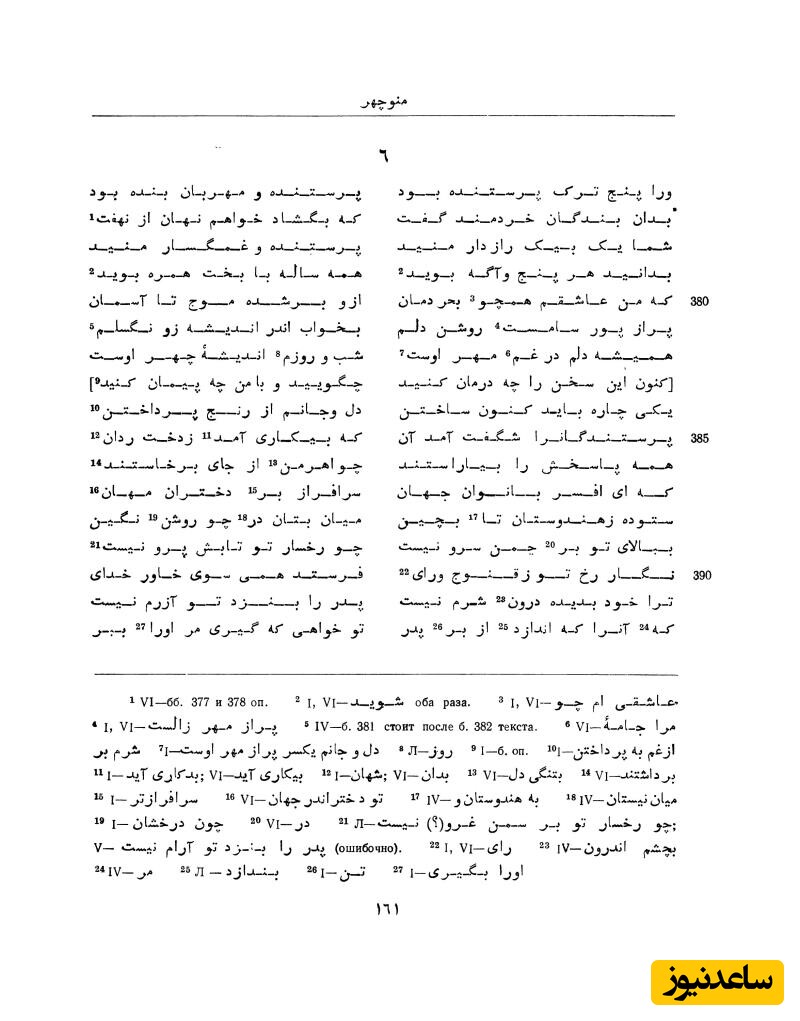 منوچهر
٦
ورا پنج ترک پرستنده بود پرستنده و مهربان بنده بود
بدان بندگان خردمند گفت که بگشاد خواهم نهان از نهفت¹
شما یک بیک رازدار منید پرستنده و غمگسار منید
بدانید هر پنج وآگه بوید² همه ساله با بخت همره بوید²
که من عاشقم همچو³ بحر دمان ازو برشده موج تا آسمان 380
پراز پور سامست⁴ روشن دلم بخواب اندر اندیشه زو نگسلم⁵
همیشه دلم در غم⁶ مهر اوست⁷ شب و روزم⁸ اندیشهٔ چهر اوست
[کنون این سخن را چه درمان کنید چگویید و با من چه پیمان کنید⁹]
یکی چاره باید کنون ساختن دل وجانم از رنج پرداختن¹⁰
پرستندگانرا شگفت آمد آن که بیکاری آمد¹¹ زدخت ردان¹² 385
همه پاسخش را بیاراستند چواهرمن¹³ از جای برخاستند¹⁴
که ای افسر بانوان جهان سرافراز بر¹⁵ دختران مهان¹⁶
ستوده زهندوستان تا¹⁷ بچین میان بتان در¹⁸ چو روشن¹⁹ نگین
ببالای تو بر²⁰ چمن سرو نیست چو رخسار تو تابش پرو نیست²¹
نگار رخ تو زقنوج ورای²² فرستد همی سوی خاور خدای 390
ترا خود بدیده درون²³ شرم نیست پدر را بنزد تو آزرم نیست
که²⁴ آنرا که اندازد²⁵ از بر²⁶ پدر تو خواهی که گیری مر اورا²⁷ ببر
¹ VI—бб. 377 и 378 оп. ² I, VI—شوید оба раза. ³ I, VI—عاشقی ام چو
⁴ I, VI—پراز مهر زالست ⁵ IV—б. 381 стоит после б. 382 текста. ⁶ VI—مرا جامهٔ
⁷ I—دل و جانم یکسر پراز مهر اوست ⁸ Л—روز ⁹ I—б. оп. ¹⁰ I—ازغم به پرداختن شرم بر
¹¹ I—بدکاری آید; VI—بیکاری آید ¹² I—شهان; VI—بدان ¹³ VI—بتنگی دل ¹⁴ VI—برداشتند
¹⁵ I—سرافرازتر ¹⁶ VI—تو دختراندرجهان ¹⁷ IV—به هندوستان و ¹⁸ IV—میان نیستان
¹⁹ I—چون درخشان ²⁰ VI—در ²¹ Л—چو رخسار تو بر سمن غرو(؟) نیست;
V—پدر را بنزد تو آرام نیست (ошибочно). ²² I, VI—رای ²³ IV—بچشم اندرون
²⁴ IV—مر ²⁵ Л—بندازد ²⁶ I—تن ²⁷ I—اورا بگیری
١٦١
ساعدنیوز